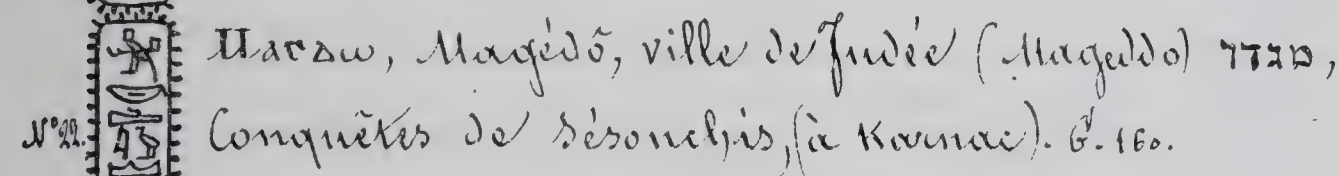 Ⲙⲁⲅⲇⲱ, Magédô, ville de Judée (Mageddo) מגדו,
N°22. Conquêtes de Sésonchis, (à Karnac). G. 160.